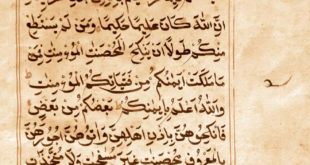 إِنَّ اللَّهَ كَانَ عَلِيمًا حَكِيمًا وَمَنْ لَمْ يَسْتَطِعْ
مِنْكُمْ طَوْلًا أَنْ يَنْكِحَ الْمُحْصَنَتِ الْمُؤْمِنَتِ فَمِنْ
مَا مَلَكَتْ أَيْمَنُكُمْ مِنْ فَتَيَتِكُمُ الْمُؤْمِنَتِ
وَاللَّهُ أَعْلَمُ بِإِيمَنِكُمْ بَعْضُكُمْ مِنْ بَعْضٍ
فَانْكِحُوهُنَّ بِإِذْنِ أَهْلِهِنَّ وَآتُوهُنَّ أُجُورَهُنَّ
بِالْمَعْرُوفِ مُحْصَنَتٍ غَيْرَ مُسَفِحَتٍ وَلَا مُتَّخِذَتِ